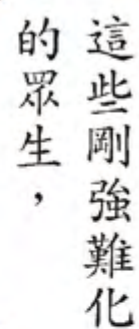 這些剛強難化
的眾生，